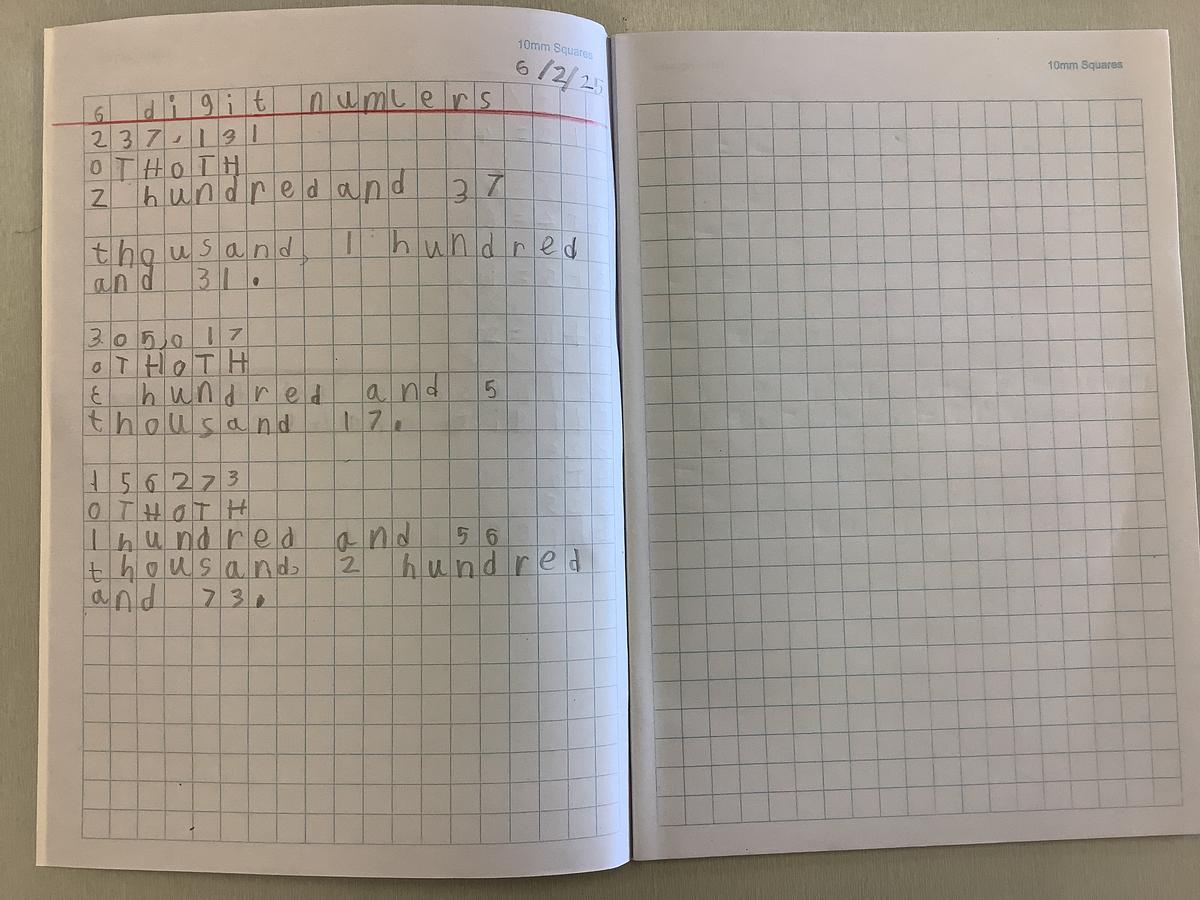 10mm Squares
6/2/25
6 digit numbers
237,131
OTHOTH
2 hundred and 37
thousand, 1 hundred
and 31.
305,017
OTHOTH
3 hundred and 5
thousand 17.
156273
OTHOTH
1 hundred and 56
thousand, 2 hundred
and 73.
10mm Squares